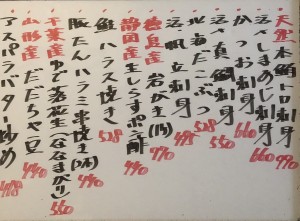 天然本鮪トロ刺身 990
活〆しめじ刺身 660
かつお刺身 660
活〆真鯛刺身 550
北海だこぶつ 528
活帆立刺身 495
徳島産岩がき(1ケ) 770
静岡産生しらすポン酢 440
鮭ハラス焼き 528
豚たんハラミ串焼き(2本) 440
千葉産ゆで落花生(ななまがり) 550
山形産だだちゃ豆 440
アスパラバター炒め 418